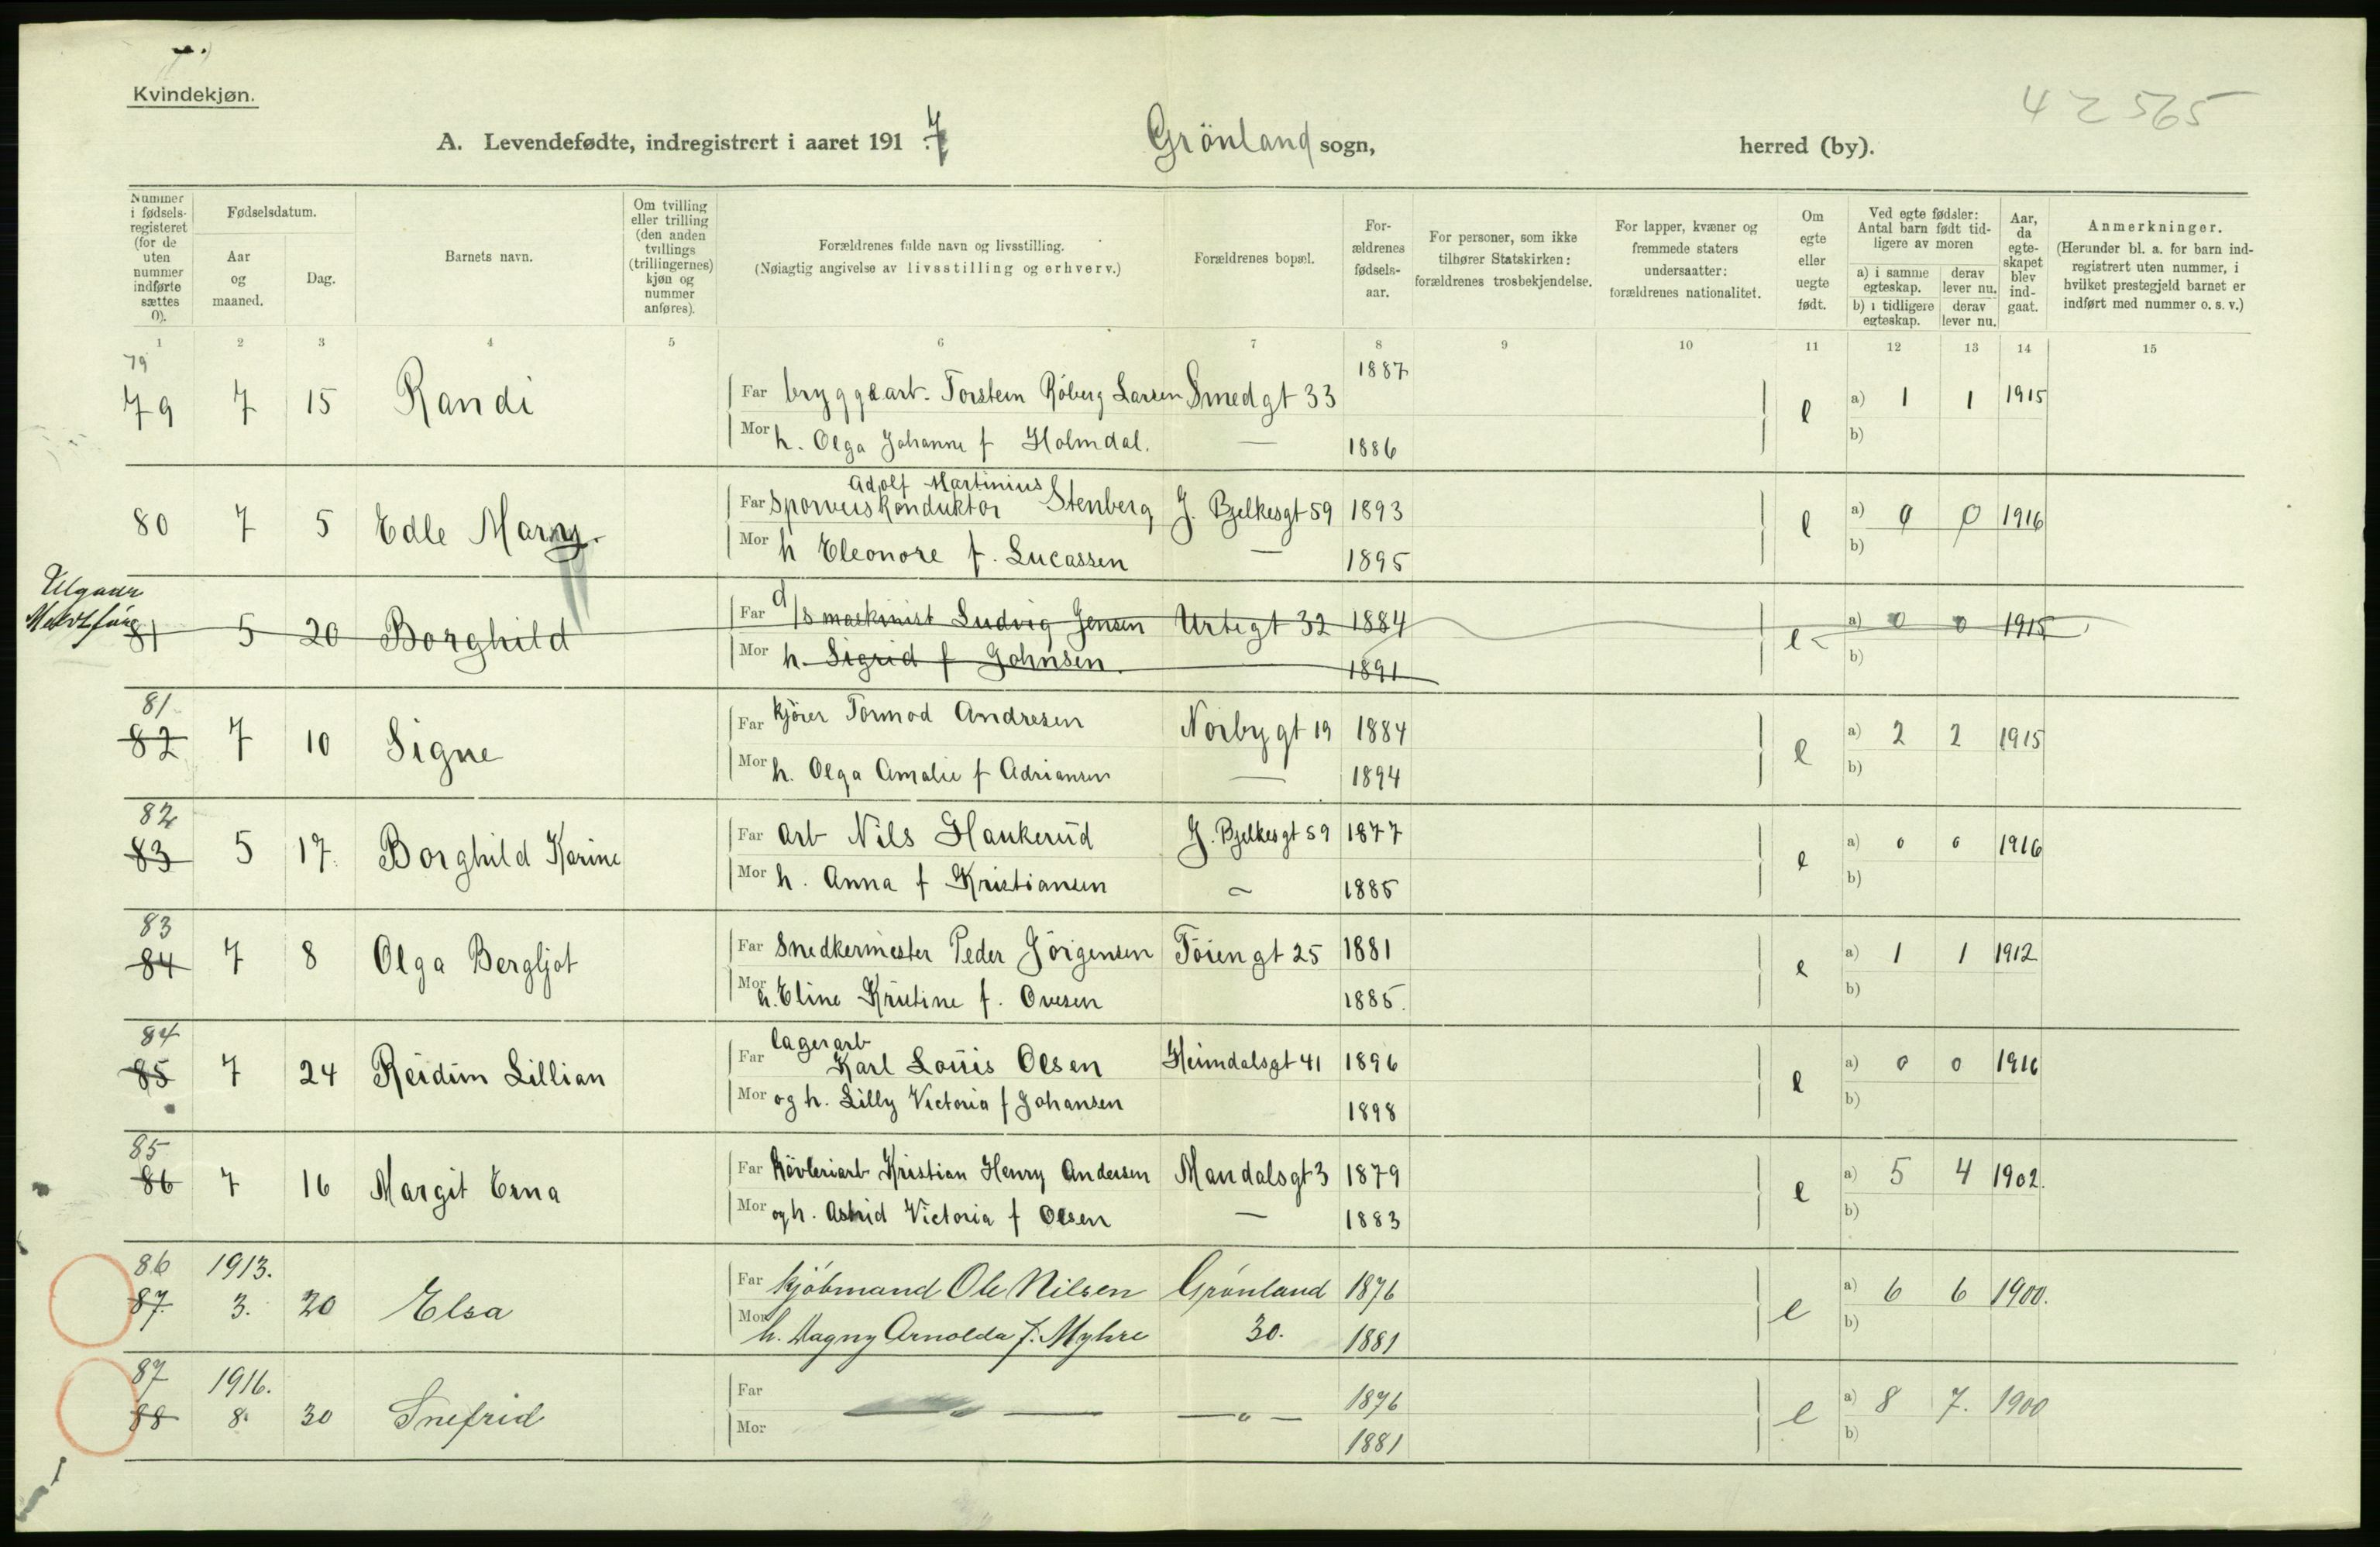 Kvindekjøn.
42565
A. Levendefødte, indregistrert i aaret 1917 Grönland sogn, herred (by).
Nummer i fødsels-registeret (for de uten nummer indførte sættes 0).
Fødselsdatum.
Aar og maaned.
Dag.
Barnets navn.
Om tvilling eller trilling (den anden tvillings (trillingernes) kjøn og nummer anføres).
Forældrenes fulde navn og livsstilling.
(Nøiagtig angivelse av livsstilling og erhverv.)
Forældrenes bopæl.
For-ældrenes fødsels-aar.
For personer, som ikke tilhører Statskirken: forældrenes trosbekjendelse.
For lapper, kvæner og fremmede staters undersaatter: forældrenes nationalitet.
Om egte eller uegte født.
Ved egte fødsler: Antal barn født tid-ligere av moren
a) i samme egteskap. derav lever nu.
b) i tidligere egteskap. derav lever nu.
Aar, da egte-skapet blev ind-gaat.
Anmerkninger.
(Herunder bl. a. for barn ind-registrert uten nummer, i hvilket prestegjeld barnet er indført med nummer o. s. v.)
1 2 3 4 5 6 7 8 9 10 11 12 13 14 15
79
79 7 15 Randi Far bryggearb. Torstein Röberg Larsen Smedgt 33 1887 e a) 1 1 1915
Mor h. Olga Johanne f Holmdal. — 1886 b)
Adolf Martinius
80 7 5 Edle Marny. Far Sporveiskonduktor Stenberg J. Bjelkesgt 59 1893 e a) 0 0 1916
Mor h Eleonore f. Lucassen — 1895 b)
Utgaar
81 5 20 Borghild Far d/s maskinist Ludvig Jensen Urtegt 32 1884 e a) 0 0 1915
Mor h. Sigrid f Johnsen. 1891 b)
81
82 7 10 Signe Far kjörer Tormod Andresen Norbygt 19 1884 e a) 2 2 1915
Mor h. Olga Amalie f Adriansen — 1894 b)
82
83 5 17. Borghild Karine Far Arb Nils Haukerud J. Bjelkesgt 59 1877 e a) 0 0 1916
Mor h. Anna f Kristiansen — 1885 b)
83
84 7 8 Olga Bergljot Far Snedkermester Peder Jörgensen Töiengt 25 1881 e a) 1 1 1912
Mor h. Eline Kristine f. Ovesen 1885. b)
84
lagerarb
85 7 24 Reidun Lillian Far Karl Louis Olsen Heimdalsgt 41 1896 e a) 0 0 1916
Mor og h. Lilly Victoria f Johansen 1898 b)
85
86 7 16 Margit Erna Far Hövleriarb Kristian Henry Andersen Mandalsgt 3 1879 e a) 5 4 1902.
Mor og h. Astrid Victoria f Olsen — 1883 b)
86 1913.
87. 3. 20 Elsa Far Kjöbmand Ole Nilsen Grønland 1876 e a) 6 6 1900.
Mor h. Dagny Arnolda f. Myhre 30. 1881 b)
87 1916.
88 8. 30 Snefrid Far — " — — " — 1876 e a) 8 7. 1900
Mor 1881 b)